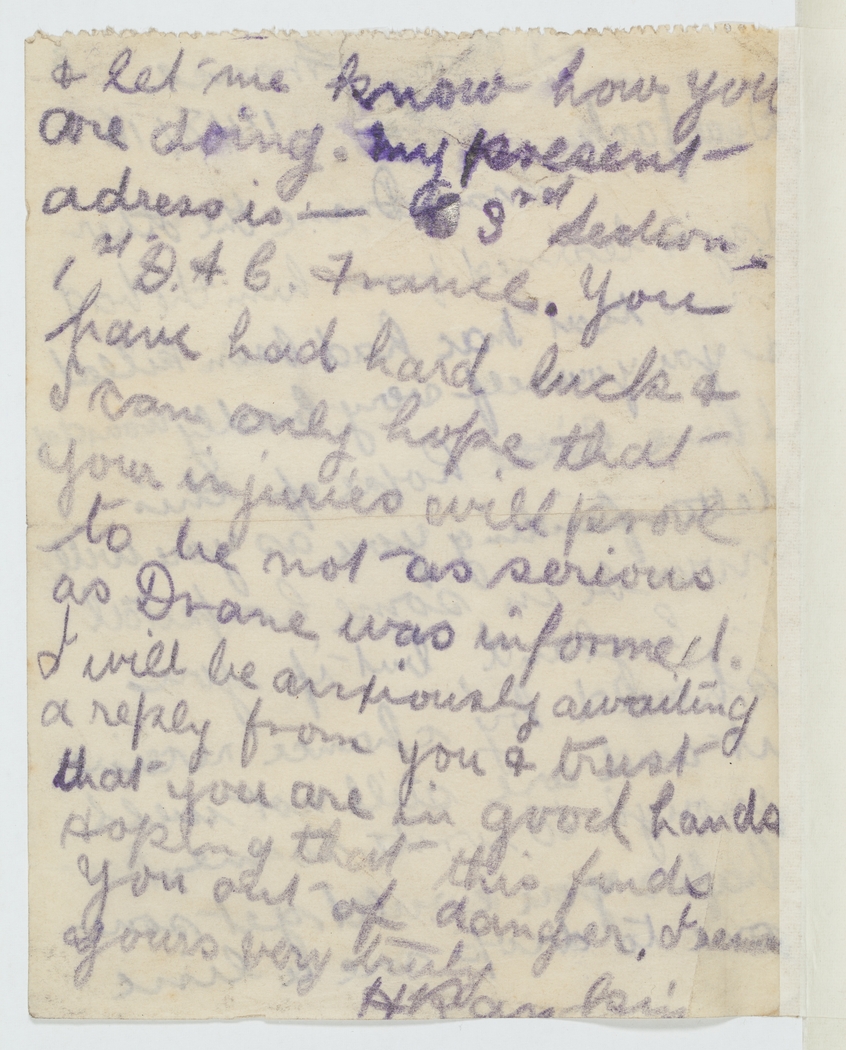 & let me know how you
are doing. My present
adress is — 3rd Section
1st D.A.C. France. You
have had hard luck &
I can only hope that
your injuries will prove
to be not as serious
as Drane was informed.
I will be anxiously awaiting
a reply from you & trust
that you are in good hands
Hoping that this finds
you out of danger. I remain
yours very truly